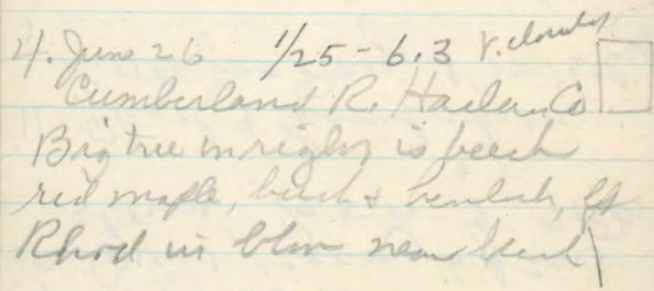 4. June 26 1/25 - 6.3 V. cloudy
Cumberland R. Harlan Co
Big tree in right is beech
red maple, birch & hemlock, lft
Rhod in blm near